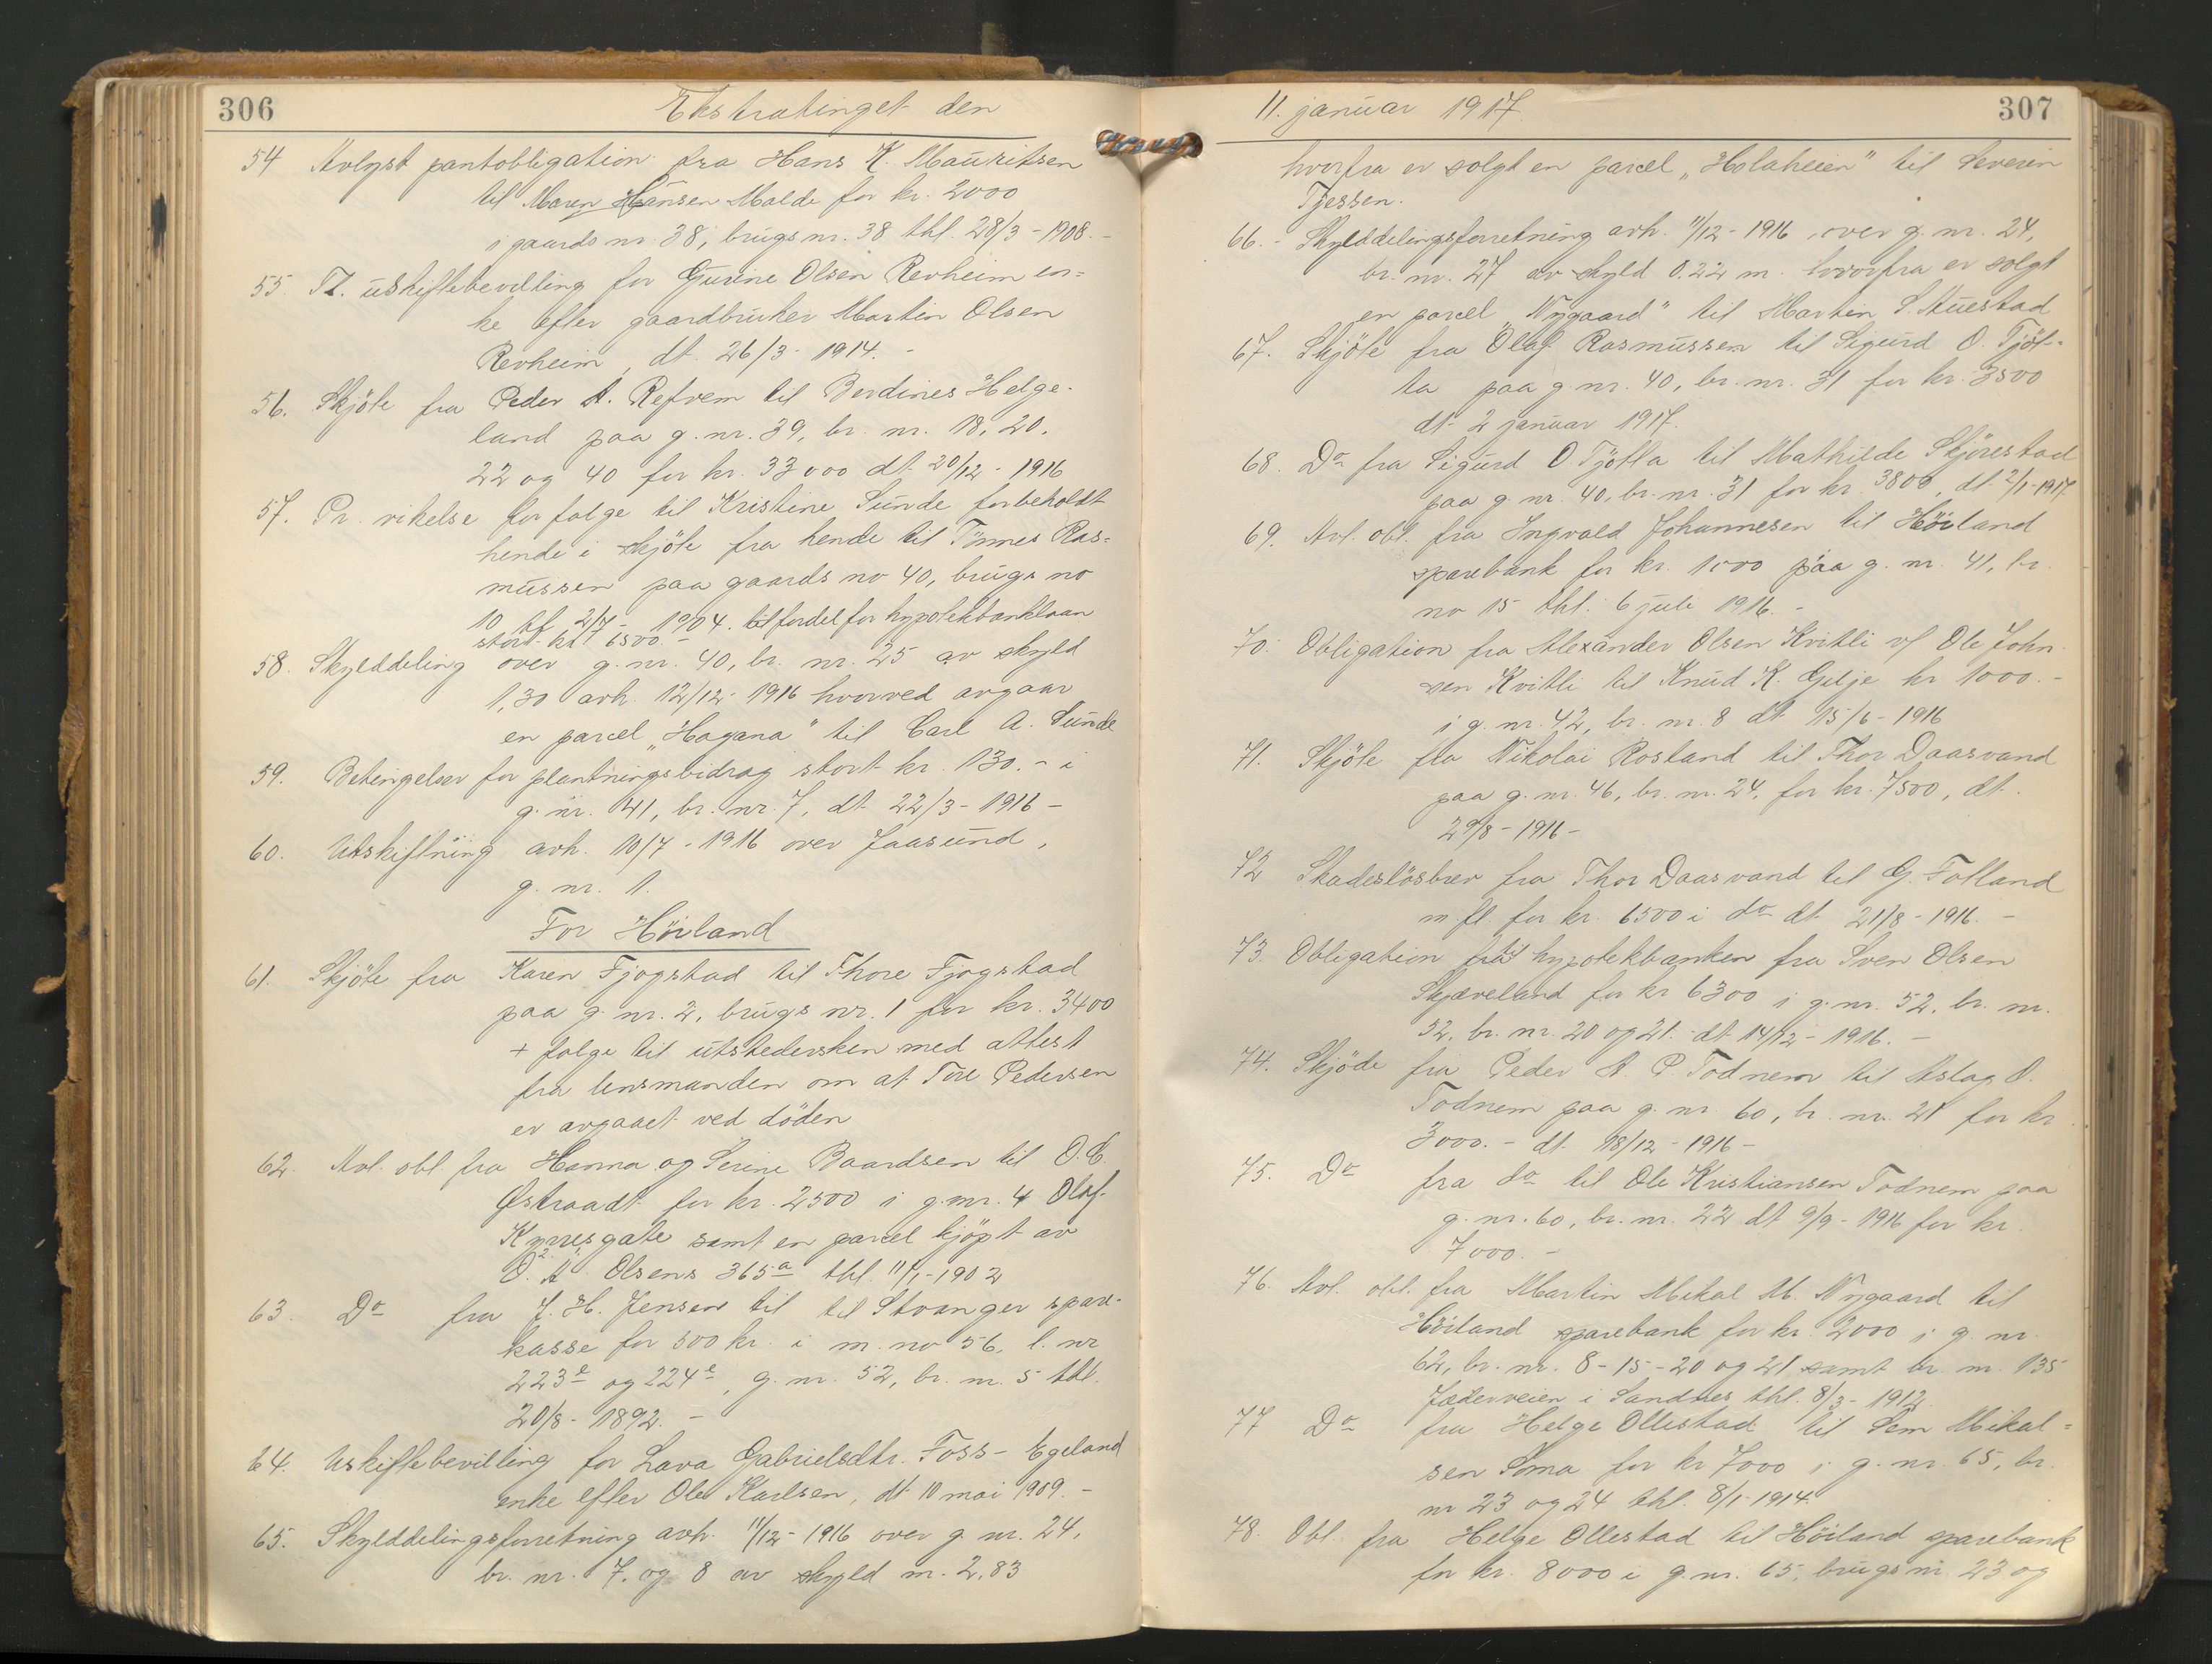 306
Ekstratinget den
54 Avlyst pantobligation fra Hans K. Mauritsen
til Maren Hansen Malde for kr. 2000
i gaards nr. 38, brugs nr. 38 thl. 28/3 - 1908. -
55. Tl. uskiftebevilling for Gurine Olsen Revheim en=
ke efter gaardbruker Martin Olsen
Revheim, dt. 26/3 - 1914. -
56. Skjöte fra Peder A. Refvem til Berdines Helge-
land paa g. nr. 39, br. nr. 18, 20,
22 og 40 for kr. 33000 dt. 20/12 - 1916
57. Pr. vikelse for folge til Kristine Sunde forbeholdt
hende i skjöte fra hende til Tönnes Ras=
mussen paa gaards no 40, brugs no
10 thl 2/7 - 1904. til fordel for hypotekbanklaan
stort kr 6500. -
58. Skylddeling over g. nr. 40, br. nr. 25 av skyld
1,30 avh. 12/12 - 1916 hvorved avgaar
en parcel „Hagana" til Carl A. Sunde
59. Betingelser for plantningsbidrag stort kr. 130. - i
g. nr. 41, br. nr. 7, dt 22/3 - 1916 -
60. Utskiftning avh. 10/7 - 1916 over Jaasund,
g. nr. 1.
For Höiland
61. Skjöte fra Karen Fjogstad til Thore Fjogstad
paa g. nr. 2, brugs nr. 1 for kr. 3400
+ folge til utstedersken med attest
fra lensmanden om at Tore Pedersen
er avgaaet ved döden
62. Avl. obl. fra Hanna og Serine Baardsen til O. C.
Østraadt for kr. 2500 i g. nr. 4 Olaf
Kyrresgate samt en parcel kjöpt av
O. A. Olsens 365a thl. 11/1 - 1902
63. Do fra J. H. Jensen til til Stvanger spare-
kasse for 500 kr. i m. no 56, l. nr
223e og 224e, g. nr. 52, br. nr. 5 thl.
20/8 - 1892. -
64. Uskiftebevilling for Lava Gabrielsdtr. Foss - Egeland
enke efter Ole Karlsen, dt 10 mai 1909. -
65. Skylddelingsforretning avh. 11/12 - 1916 over g. nr. 24,
br. nr. 7. og 8 av skyld m. 2,83
11. januar 1917.
307
hvorfra er solgt en parcel „Holaheien" til Severin
Tjessen.
66. - Skylddelingsforretning avh. 11/12 - 1916 over g. nr. 24,
br. nr. 27 av skyld 0.22 m. hvorfra er solgt
en parcel „Nygaard" til Martin S. Auestad
67. Skjöte fra Olaf Rasmussen til Sigurd O. Tjöt-
ta paa g. nr. 40, br. nr. 31 for kr. 3500
dt. 2 januar 1917.
68. Do fra Sigurd O. Tjötta til Mathilde Skjörestad
paa g. nr. 40, br. nr. 31 for kr 3800, dt. 2/1 - 1917
69. Avl. obl. fra Ingvald Johannesen til Höiland
sparebank for kr. 1000 paa g. nr. 41, br.
no 15 thl. 6 juli 1916. -
70. Obligation fra Alexander Olsen Kvitli v/ Ole John
sen Kvitli til Knud K. Gilje kr 1000. -
i g. nr. 42, br. nr. 8 dt 15/6 - 1916
71. Skjöte fra Nikolai Rosland til Thor Daasvand
paa g. nr. 46, br. nr. 24, for kr. 7500, dt.
29/8 - 1916 -
72 Skadeslösbrev fra Thor Daasvand til G. Folland
m. fl. for kr. 6500 i do dt 21/8 - 1916. -
73. Obligation til hypotekbanken fra Sven Olsen
Skjæveland for kr 6300 i g. nr. 52, br. nr.
52, br. nr. 20 og 21. dt 14/12 - 1916. -
74. Skjöde fra Peder A. P. Todnem til Aslag O.
Todnem paa g. nr. 60, br. nr. 21 for kr
3000. - dt. 18/12 - 1916 -
75. Do fra do til Ole Kristiansen Todnem paa
g. nr. 60, br. nr. 22 dt 9/9 - 1916 for kr.
7000. -
76. Avl. obl. fra Martin Mikal M. Nygaard til
Höiland sparebank for kr. 2000 i g. nr.
62, br. nr. 8 - 15 - 20 og 21 samt br. nr. 135
Jæderveien i Sandnes thl. 8/3 - 1912.
77 Do fra Helge Ollestad til Sem Mikal=
sen Soma for kr 7000 i g. nr. 65, br.
nr 23 og 24 thl. 8/1 - 1914.
78. Obl. fra Helge Ollestad til Höiland sparebank
for kr. 8000 i g. nr. 65, brugs nr. 23 og